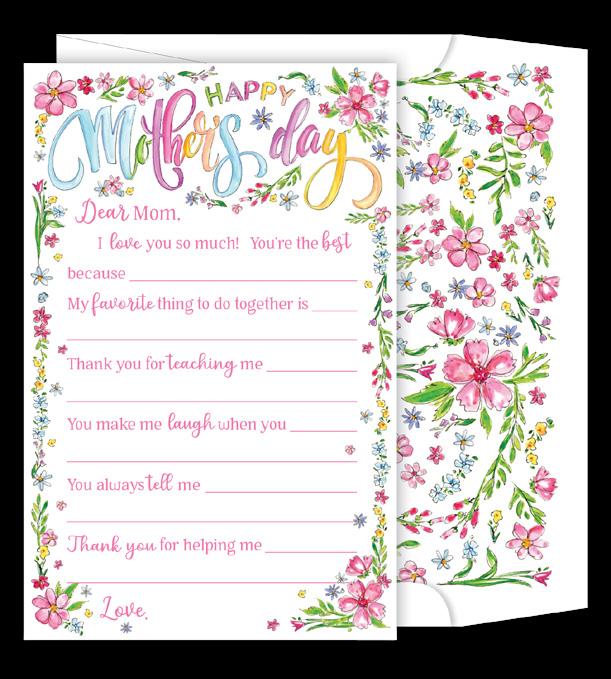 HAPPY
Mother's day
Dear Mom,
I love you so much! You're the best
because
My favorite thing to do together is
Thank you for teaching me
You make me laugh when you
You always tell me
Thank you for helping me
Love,